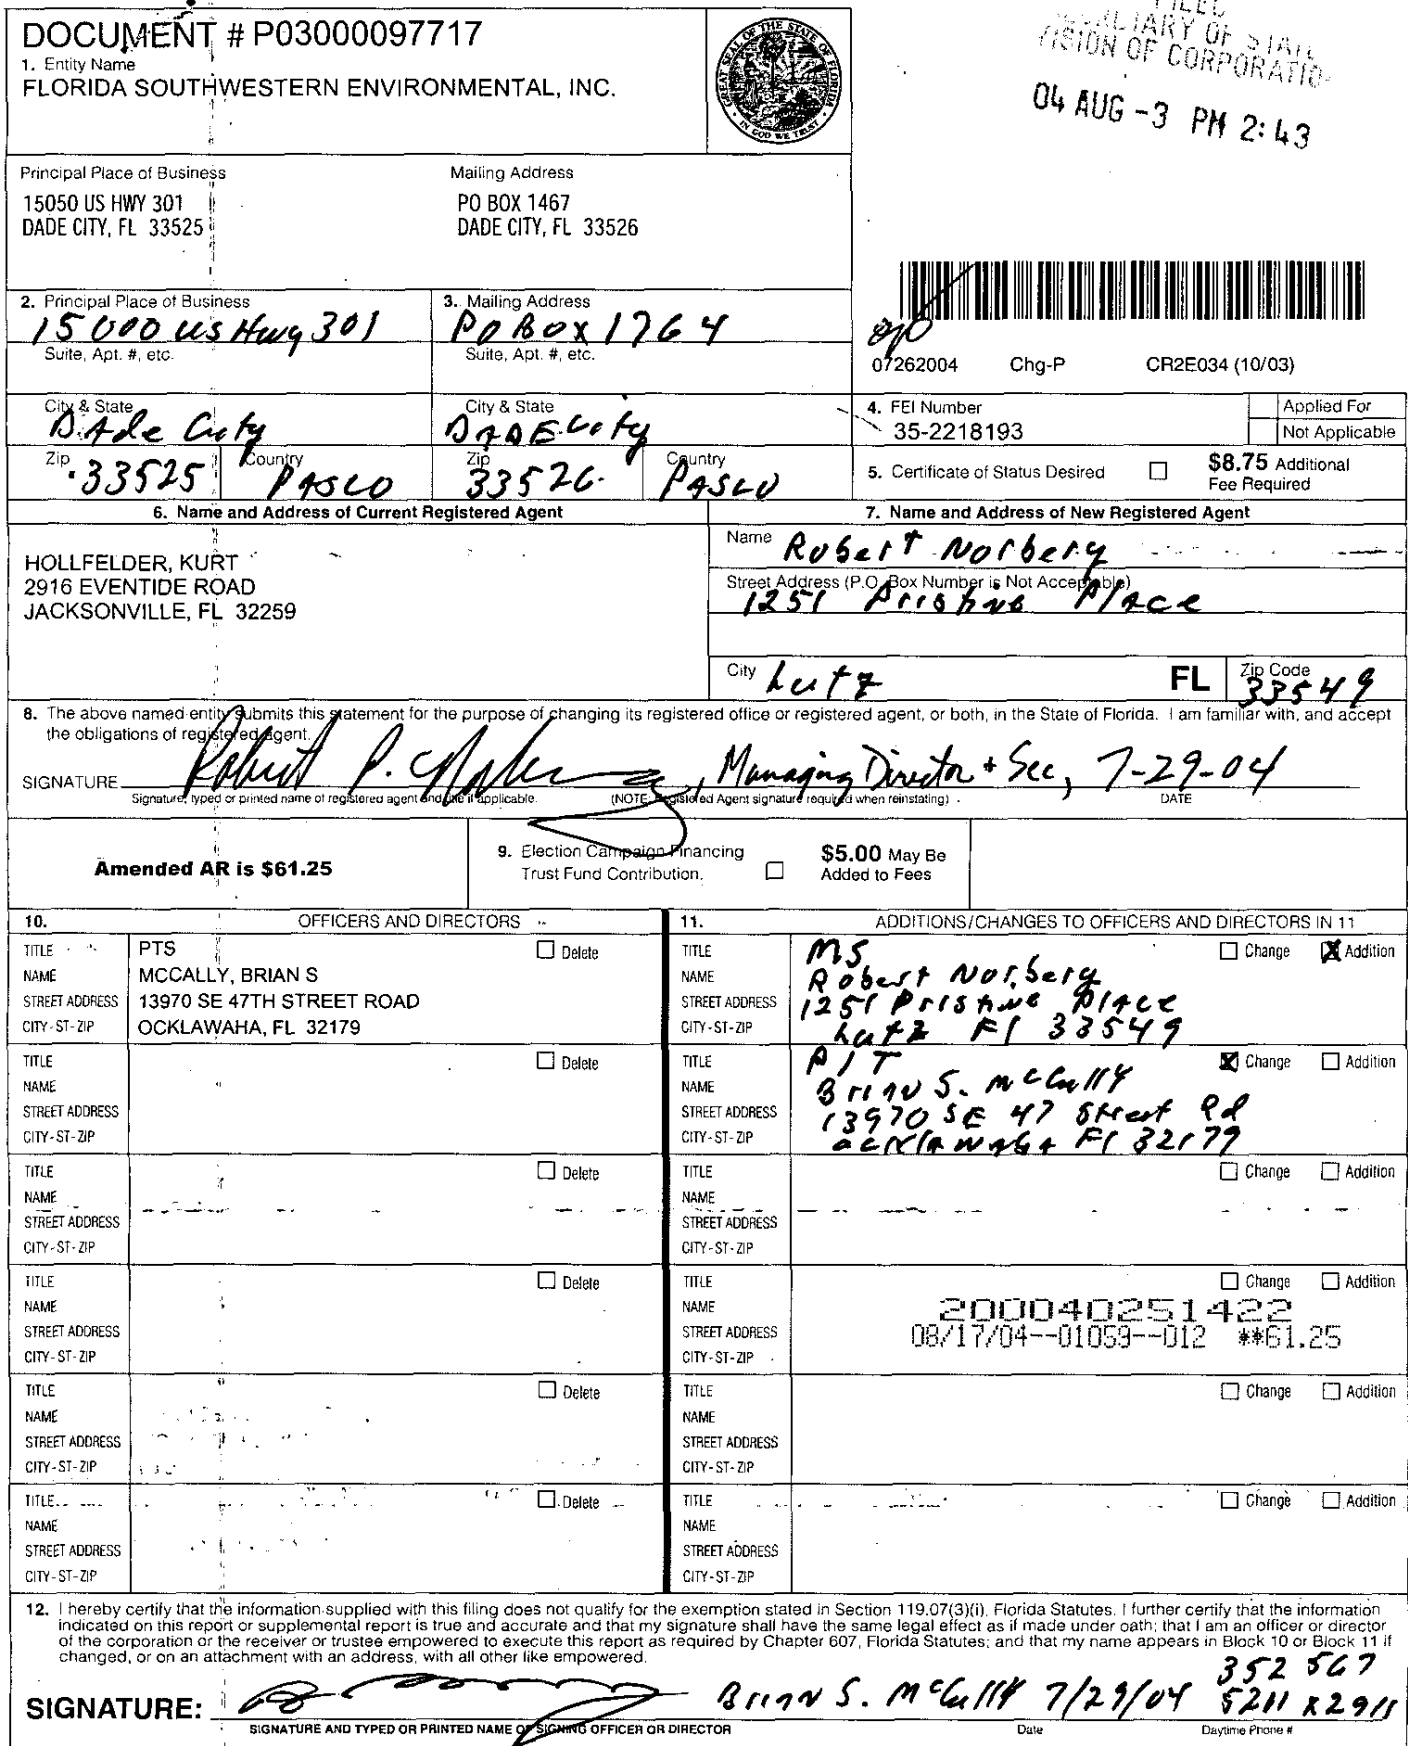 DOCUMENT # P03000097717
1. Entity Name
FLORIDA SOUTHWESTERN ENVIRONMENTAL, INC.
GREAT SEAL OF THE STATE OF FLORIDA
IN GOD WE TRUST
FILED
OF STATE
OF
04 AUG -3 PM 2:43
Principal Place of Business
15050 US HWY 301
DADE CITY, FL 33525
Mailing Address
PO BOX 1467
DADE CITY, FL 33526
2. Principal Place of Business
15000 US Hwy 301
Suite, Apt. #, etc.
3. Mailing Address
PO BOX 1764
Suite, Apt. #, etc.
07262004 Chg-P CR2E034 (10/03)
City & State
DAde City
City & State
DADE City
Zip
33525
Country
PASCO
Zip
33526
Country
PASCO
4. FEI Number
35-2218193
Applied For
Not Applicable
5. Certificate of Status Desired
$8.75 Additional
Fee Required
6. Name and Address of Current Registered Agent
HOLLFELDER, KURT
2916 EVENTIDE ROAD
JACKSONVILLE, FL 32259
7. Name and Address of New Registered Agent
Name Robert Norberg
Street Address (P.O. Box Number is Not Acceptable)
1251 Pristine Place
City Lutz FL Zip Code
33549
8. The above named entity submits this statement for the purpose of changing its registered office or registered agent, or both, in the State of Florida. I am familiar with, and accept
the obligations of registered agent.
SIGNATURE Robert P. Norberg, Managing Director + Sec, 7-29-04
Signature, typed or printed name of registered agent and title if applicable. (NOTE: Registered Agent signature required when reinstating) DATE
Amended AR is $61.25
9. Election Campaign Financing
Trust Fund Contribution.
$5.00 May Be
Added to Fees
10. OFFICERS AND DIRECTORS
TITLE PTS Delete
NAME MCCALLY, BRIAN S
STREET ADDRESS 13970 SE 47TH STREET ROAD
CITY-ST-ZIP OCKLAWAHA, FL 32179
TITLE Delete
NAME
STREET ADDRESS
CITY-ST-ZIP
TITLE Delete
NAME
STREET ADDRESS
CITY-ST-ZIP
TITLE Delete
NAME
STREET ADDRESS
CITY-ST-ZIP
TITLE Delete
NAME
STREET ADDRESS
CITY-ST-ZIP
TITLE Delete
NAME
STREET ADDRESS
CITY-ST-ZIP
11. ADDITIONS/CHANGES TO OFFICERS AND DIRECTORS IN 11
TITLE MS Change X Addition
NAME Robert Norberg
STREET ADDRESS 1251 Pristine Place
CITY-ST-ZIP Lutz Fl 33549
TITLE P/T X Change Addition
NAME Brian S. McCally
STREET ADDRESS 13970 SE 47 Street Rd
CITY-ST-ZIP ocklawaha Fl 32179
TITLE Change Addition
NAME
STREET ADDRESS
CITY-ST-ZIP
TITLE Change Addition
NAME 200040251422
STREET ADDRESS 08/17/04--01059--012 **61.25
CITY-ST-ZIP
TITLE Change Addition
NAME
STREET ADDRESS
CITY-ST-ZIP
TITLE Change Addition
NAME
STREET ADDRESS
CITY-ST-ZIP
12. I hereby certify that the information supplied with this filing does not qualify for the exemption stated in Section 119.07(3)(i), Florida Statutes. I further certify that the information
indicated on this report or supplemental report is true and accurate and that my signature shall have the same legal effect as if made under oath; that I am an officer or director
of the corporation or the receiver or trustee empowered to execute this report as required by Chapter 607, Florida Statutes; and that my name appears in Block 10 or Block 11 if
changed, or on an attachment with an address, with all other like empowered.
352 567
SIGNATURE: Brian S. McCally 7/29/04 5211 x2911
SIGNATURE AND TYPED OR PRINTED NAME OF SIGNING OFFICER OR DIRECTOR Date Daytime Phone #